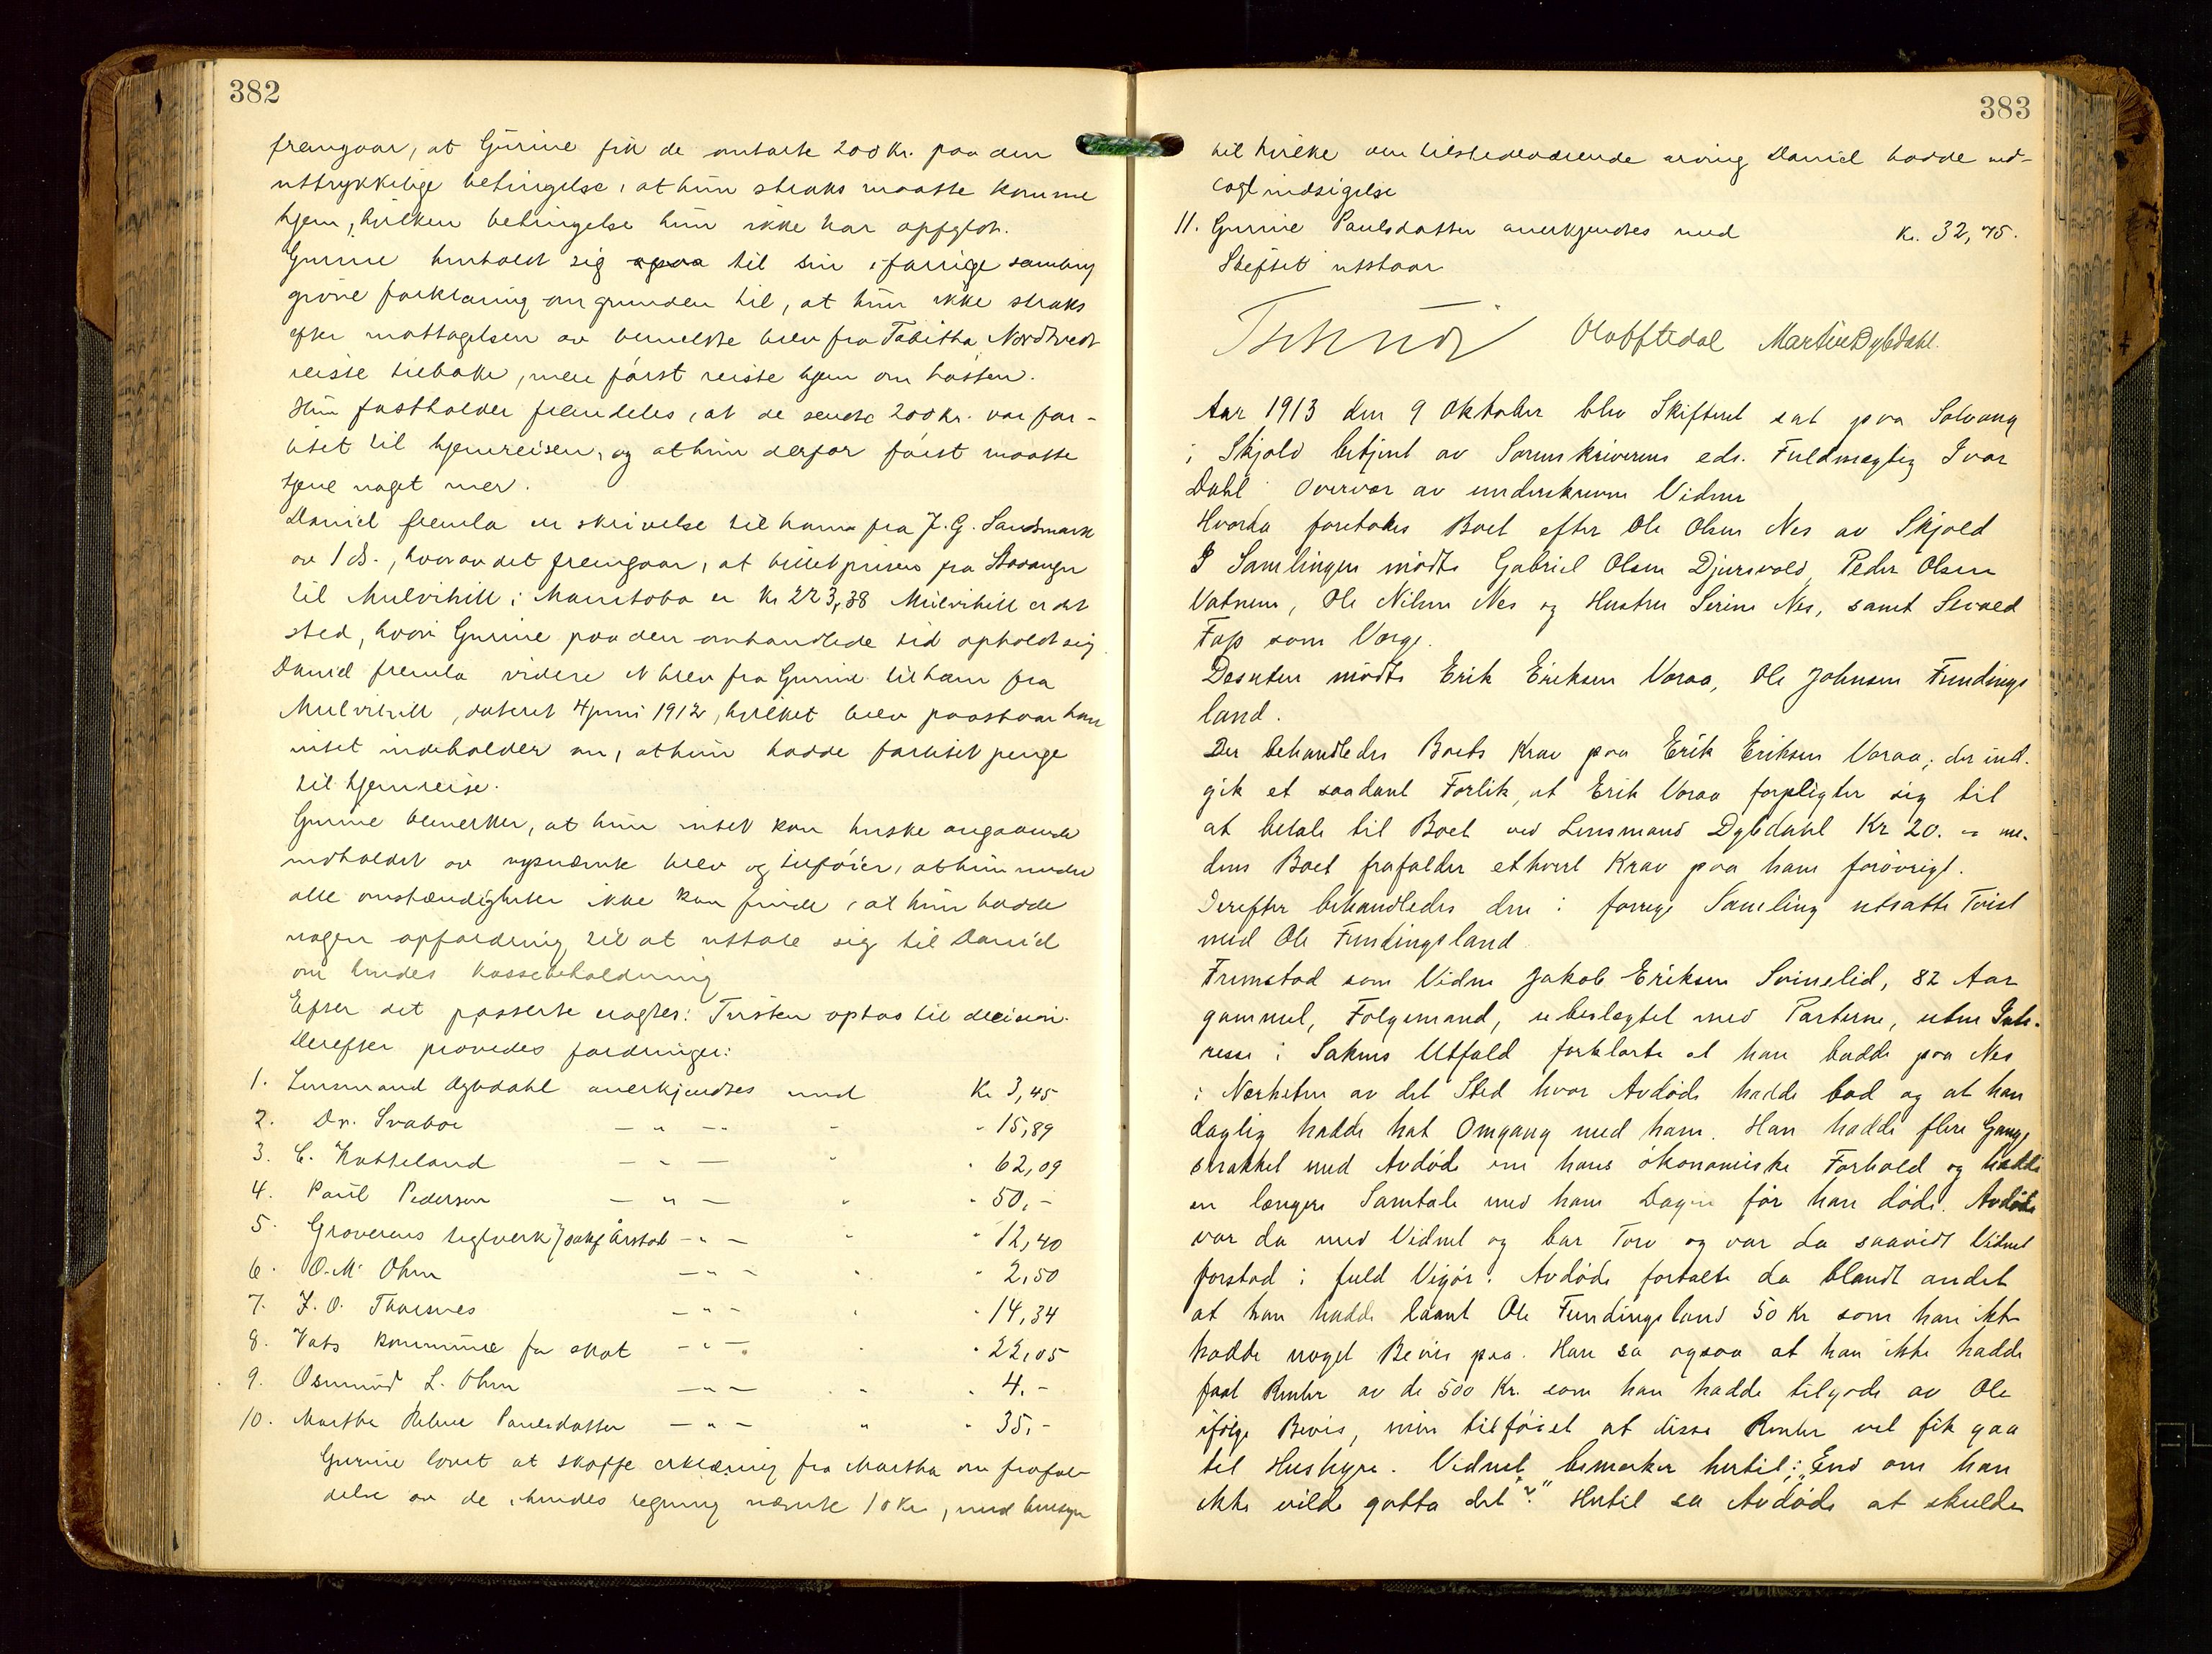 382
fremgaar, at Gurine fik de omtalte 200 Kr. paa den
uttrykkelige betingelse, at hun straks maatte komme
hjem, hvilken betingelse hun ikke har opfyldt.
Gurine henholdt sig til sin i forrige samling
givne forklaring om grunden til, at hun ikke straks
efter mottagelsen av bemeldte brev fra Tabitha Nordtvedt
reiste tilbake, men først reiste hjem om høsten.
Hun fastholder fremdeles, at de sendte 200 kr. var for-
litet til hjemreisen, og at hun derfor først maatte
tjene noget mer.
Daniel fremla en skrivelse til ham fra J. G. Sandsmark
av 1 ds., hvorav det fremgaar, at billetprisen fra Stavanger
til Mulvihill i Manitoba er Kr 223,38 Mulvihill er det
sted, hvor Gurine paa den omhandlede tid opholdt sig.
Daniel fremla videre et brev fra Gurine til ham fra
Mulvihill, dateret 4 juni 1912, hvilket brev paastaar han
intet indeholder om, at hun hadde forlitet penge
til hjemreise.
Gurine bemerker, at hun intet kan huske angaaende
indholdet av nysnævnte brev og tilføier, at hun under
alle omstændigheter ikke kan finde, at hun hadde
nogen opfordring til at uttale sig til Daniel
om hendes kassebeholdning
Efter det passerte vragtes: Tvisten optas til decision.
Derefter prøvedes fordringer:
1. Lensmand Dybdahl anerkjendtes med Kr 3,45
2. Dr. Svaboe — " — " " 15,89
3. C. Katteland — " — " " 62,09
4. Paul Pedersen — " — " " 50,-
5. Graverens teglverk / sakf Årstad — " — " " 12,40
6. O. M. Ohm — " — " " 2,50
7. J. O. Thorsnes — " — " " 14,34
8. Vats kommune for skat — " — " " 22,05
9. Osmund L. Ohm — " — " " 4.-
10. Martha Paulsdatter — " — " " 35,-
Gurine lovet at skaffe erklæring fra Martha om frafal-
delse av de i hendes regning nævnte 10 Kr, med hensyn
383
til hvilke den tilstedeværende arving Daniel hadde ned-
lagt indsigelse
11. Gurine Paulsdatter anerkjendtes med Kr. 32,75.
Skiftet utstaar
Olaf Ftedal Martin Dybdahl.
Aar 1913 den 9 Oktober blev Skifteret sat paa Solvang
i Skjold betjent av Sorenskriverens eds. Fuldmægtig Ivar
Dahl Overvær av underskrevne Vidner
Hvorda foretokes Boet efter Ole Olsen Nes av Skjold
I Samlingen mødte Gabriel Olsen Djursvold, Peder Olsen
Vatnem, Ole Nilsen Nes og Hustru Serine Nes, samt Sivald
Fop som Verge.
Desuten mødte Erik Eriksen Voraa, Ole Johnsen Fundings
land.
Der behandledes Boets Krav paa Erik Eriksen Voraa; der ind-
gik et saadant Forlik, at Erik Voraa forpligter sig til
at betale til Boet ved Lensmand Dybdahl Kr 20. - me-
dens Boet frafalder ethvert Krav paa ham forøvrigt.
Derefter behandledes den i forrige Samling utsatte Tvist
med Ole Fundingsland
Fremstod som Vidne Jakob Eriksen Svinelid, 82 Aar
gammel, Følgemand, ubeslægtet med Parterne, uten Inte-
resse i Sakens Utfald forklarte at han bodde paa Nes
i Nærheten av det Sted hvor Avdøde hadde bod og at han
daglig hadde hat Omgang med ham. Han hadde flere Gange
snakket med Avdøde om hans økonomiske Forhold og hadde
en længere Samtale med ham Dagen før han døde. Avdøde
var da med Vidnet og bar Torv og var da saavidt Vidnet
forstod i fuld Vigør. Avdøde fortalte da blandt andet
at han hadde laant Ole Fundingsland 50 Kr som han ikke
hadde noget Bevis paa. Han sa ogsaa at han ikke hadde
faat Renter av de 500 Kr. som han hadde tilgode av Ole
ifølge Bevis, men tilføiet at disse Renter vel fik gaa
til Hushyre. Vidnet bemerker hertil: "End om han
ikke vilde godta det?" Hertil sa Avdøde at skulde